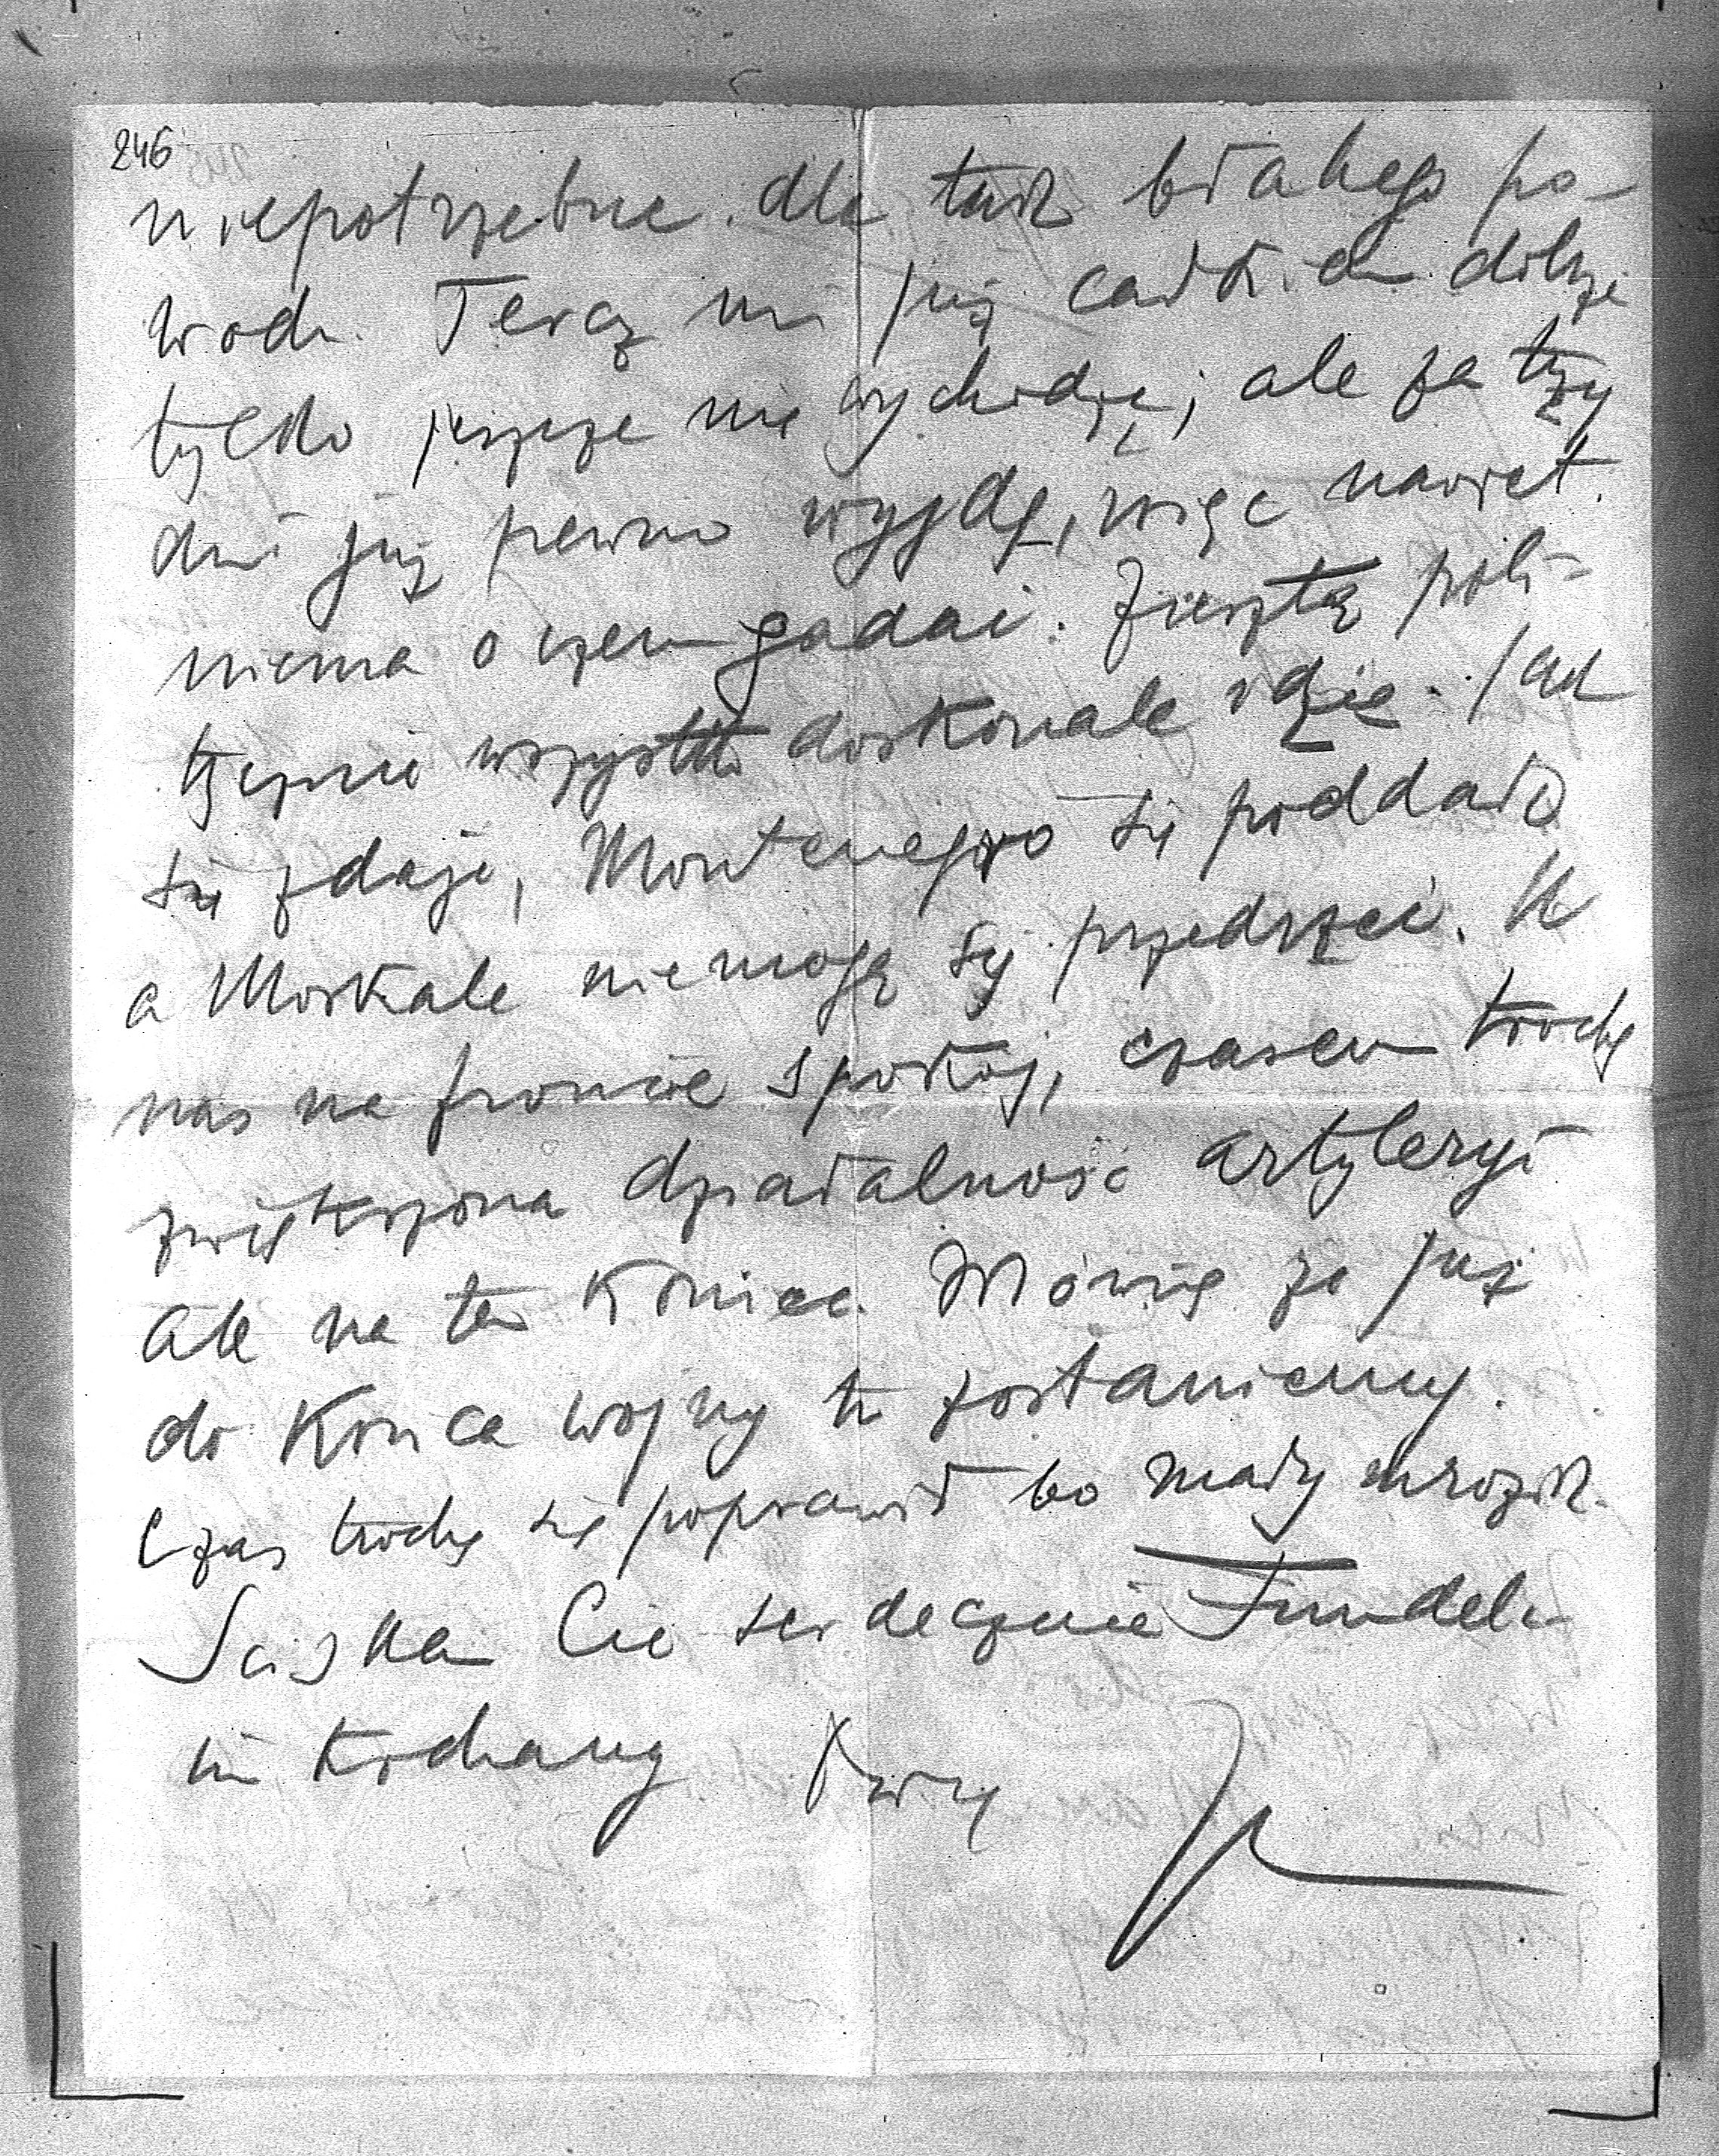 246
niepotrzebne dla tak błahego po-
wodu. Teraz mi już całkiem dobrze
tylko jeszcze nie wychodzę, ale za trzy
dni już pewno wyjdę, więc nawet
niema o czem gadać. Zresztą poli-
tycznie wszystko doskonale idzie. Jak
się zdaje, Montenegro się poddało
a Moskale niemogą się przedrzeć. U
nas na froncie spokój, czasem trochę
zwiększona działalność artyleryi
ale na tem koniec. Mówią że już
do końca wojny tu zostaniemy.
Czas trochę się poprawił bo mały mrozik.
Sciskam Cię serdecznie
mi kochany Twój